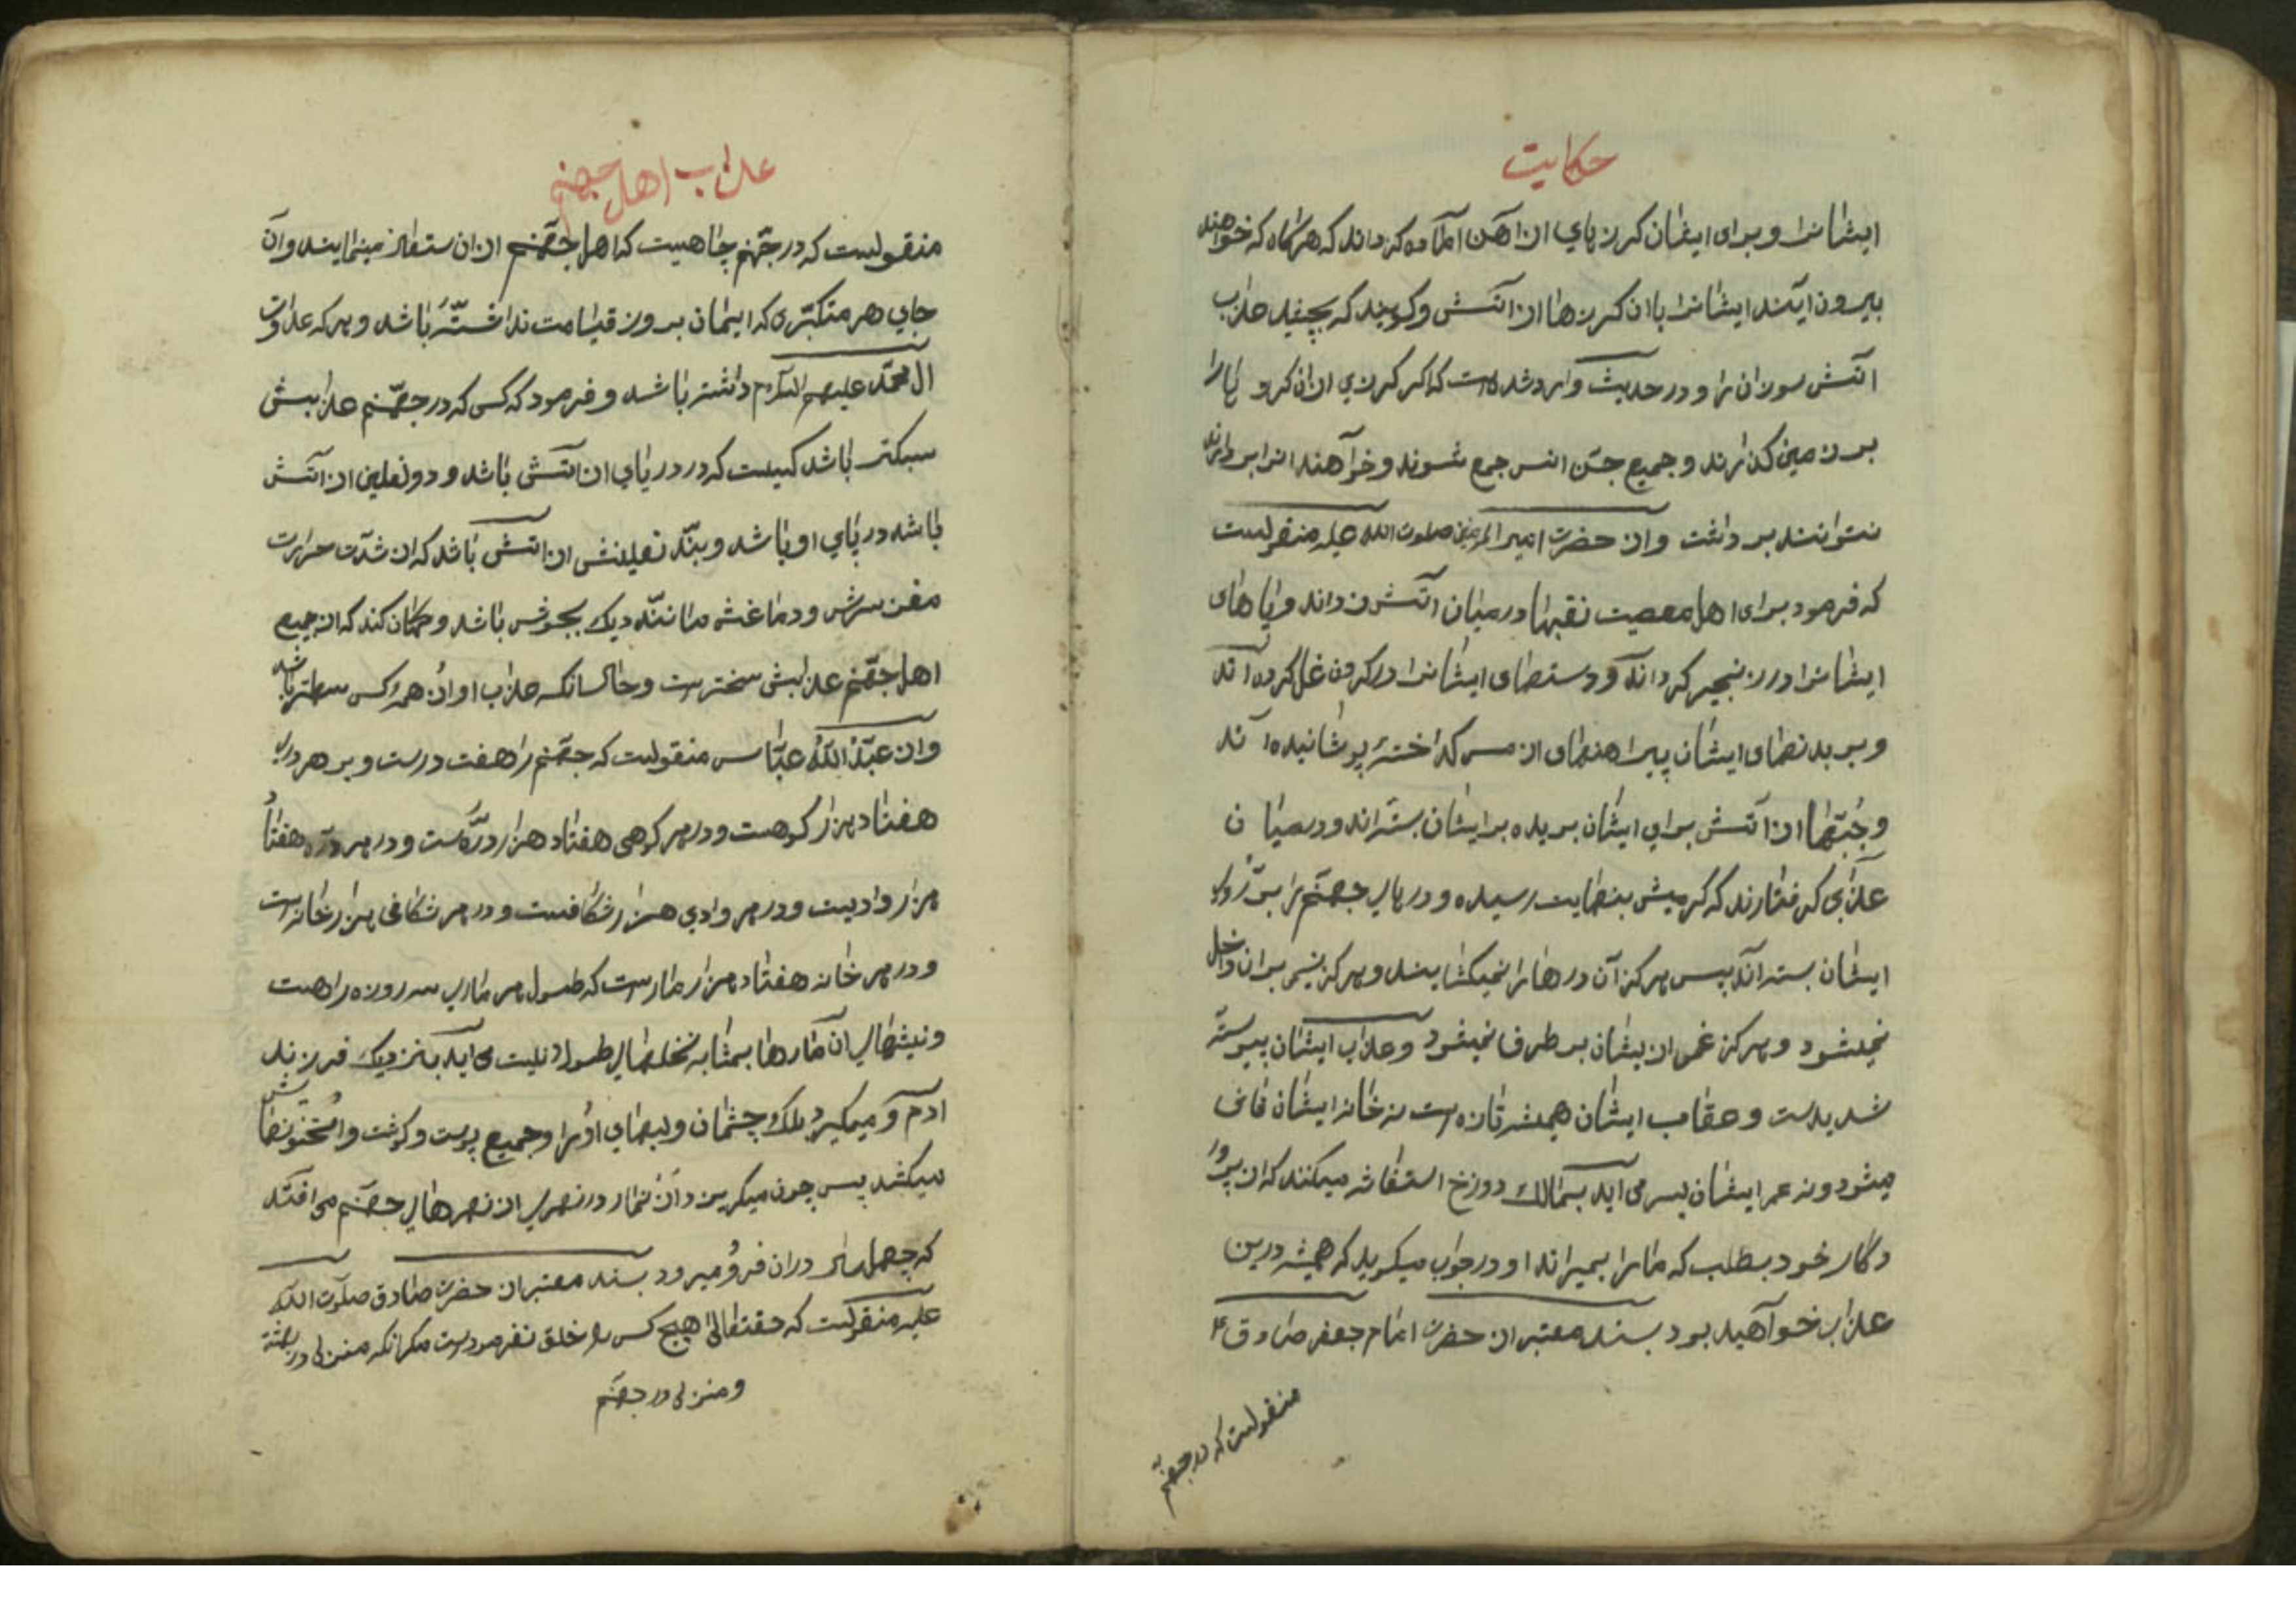 حکایت
ایشانرا و برای ایشان کرزهای از آهن آماده کرده‌اند که هرگاه که خواهند
بیرون آیند ایشانرا باان کرزها از آتش و کویند که بچشید عذاب
آتش سوزان را و در حدیث وارد شده است که اکر کرزی از ان کرزها را
بر زمین کذارند و جمیع جن انس جمع شوند و خواهند انرا بردارند
نتوانند برداشت و از حضرت امیرالمؤمنین صلوت الله علیه منقولست
که فرمود برای اهل معصیت نقبها در میان آتش زده‌اند و پاهای
ایشانرا در زنجیر کرده‌اند و دستهای ایشانرا در کردن غل کرده‌اند
و بر بدنهای ایشان پیراهنهای از مس کداخته پوشانیده‌اند
و جبّها از آتش برای ایشان بریده بر ایشان بسته‌اند و در میان
عذابی کرفتارند که کرمیش بنهایت رسیده و درهای جهنم را بر روی
ایشان بسته‌اند پس هرکز آن درها را نمیکشایند و هرکز نسیمی بر ان داخل
نمیشود و هرکز غمی از یشان بر طرف نمیشود و عذاب ایشان پیوسته
شدیدست و عقاب ایشان همیشه تازه است نه خانه ایشان فانی
میشود و نه عمر ایشان بسر می آید بمالک دوزخ استغاثه میکنند که از پرور
دکار خود بطلب که ما را بمیراند او در جواب میکوید که همیشه درین
عذاب خواهید بود بسند معتبر از حضرت امام جعفر صادق ع
منقولست که در جهنم
عذاب اهل جهنم
منقولست که در جهنم چاهیست که اهل جهنم از ان استعاذه مینمایند و آن
جای هر متکبری که ایمان بروز قیامت نداشته باشد و هر که عداوت
ال محمد علیهم السلام داشته باشد و فرمود که کسی که در جهنم عذابش
سبکتر باشد کسیست که در دریای از آتش باشد و دو نعلین از آتش
باشد در پای او باشد و بند نعلینش از آتش باشد که از شدت حرارت
مغز سرش و دماغش مانند دیک بجوش باشد و کمان کند که از جمیع
اهل جهنم عذابش سختر است و حال انکه عذاب او از همه کس سهلتر باشد
و از عبد الله عباس منقولست که جهنم را هفت درست و بر هر دری
هفتاد هزار کوهست و در هر کوهی هفتاد هزار دره است و در هر دره هفتاد
هزار وادیست و در هر وادی هزار شکافست و در هر شکافی هزار خانه است
و در هر خانه هفتاد هزار مارست که طول هر ماری سه روزه راهست
و نیشهای ان مارها بمثابه نخلهای طولانیست می آید بنزدیک فرزند
ادم و میکیرد پلک چشمان و لبهای او را و جمیع پوست و کوشت و استخوانهایش
میکشد پس چون میکریزد از ان مار در نهری از نهرهای جهنم می افتد
که چهل سال دران فرو میرود بسند معتبر از حضرت صادق صلوت الله
علیه منقولست که حقتعالی هیچ کس را خلق نفرموده است مکر انکه منزلی در بهشت
و منزلی در جهنم